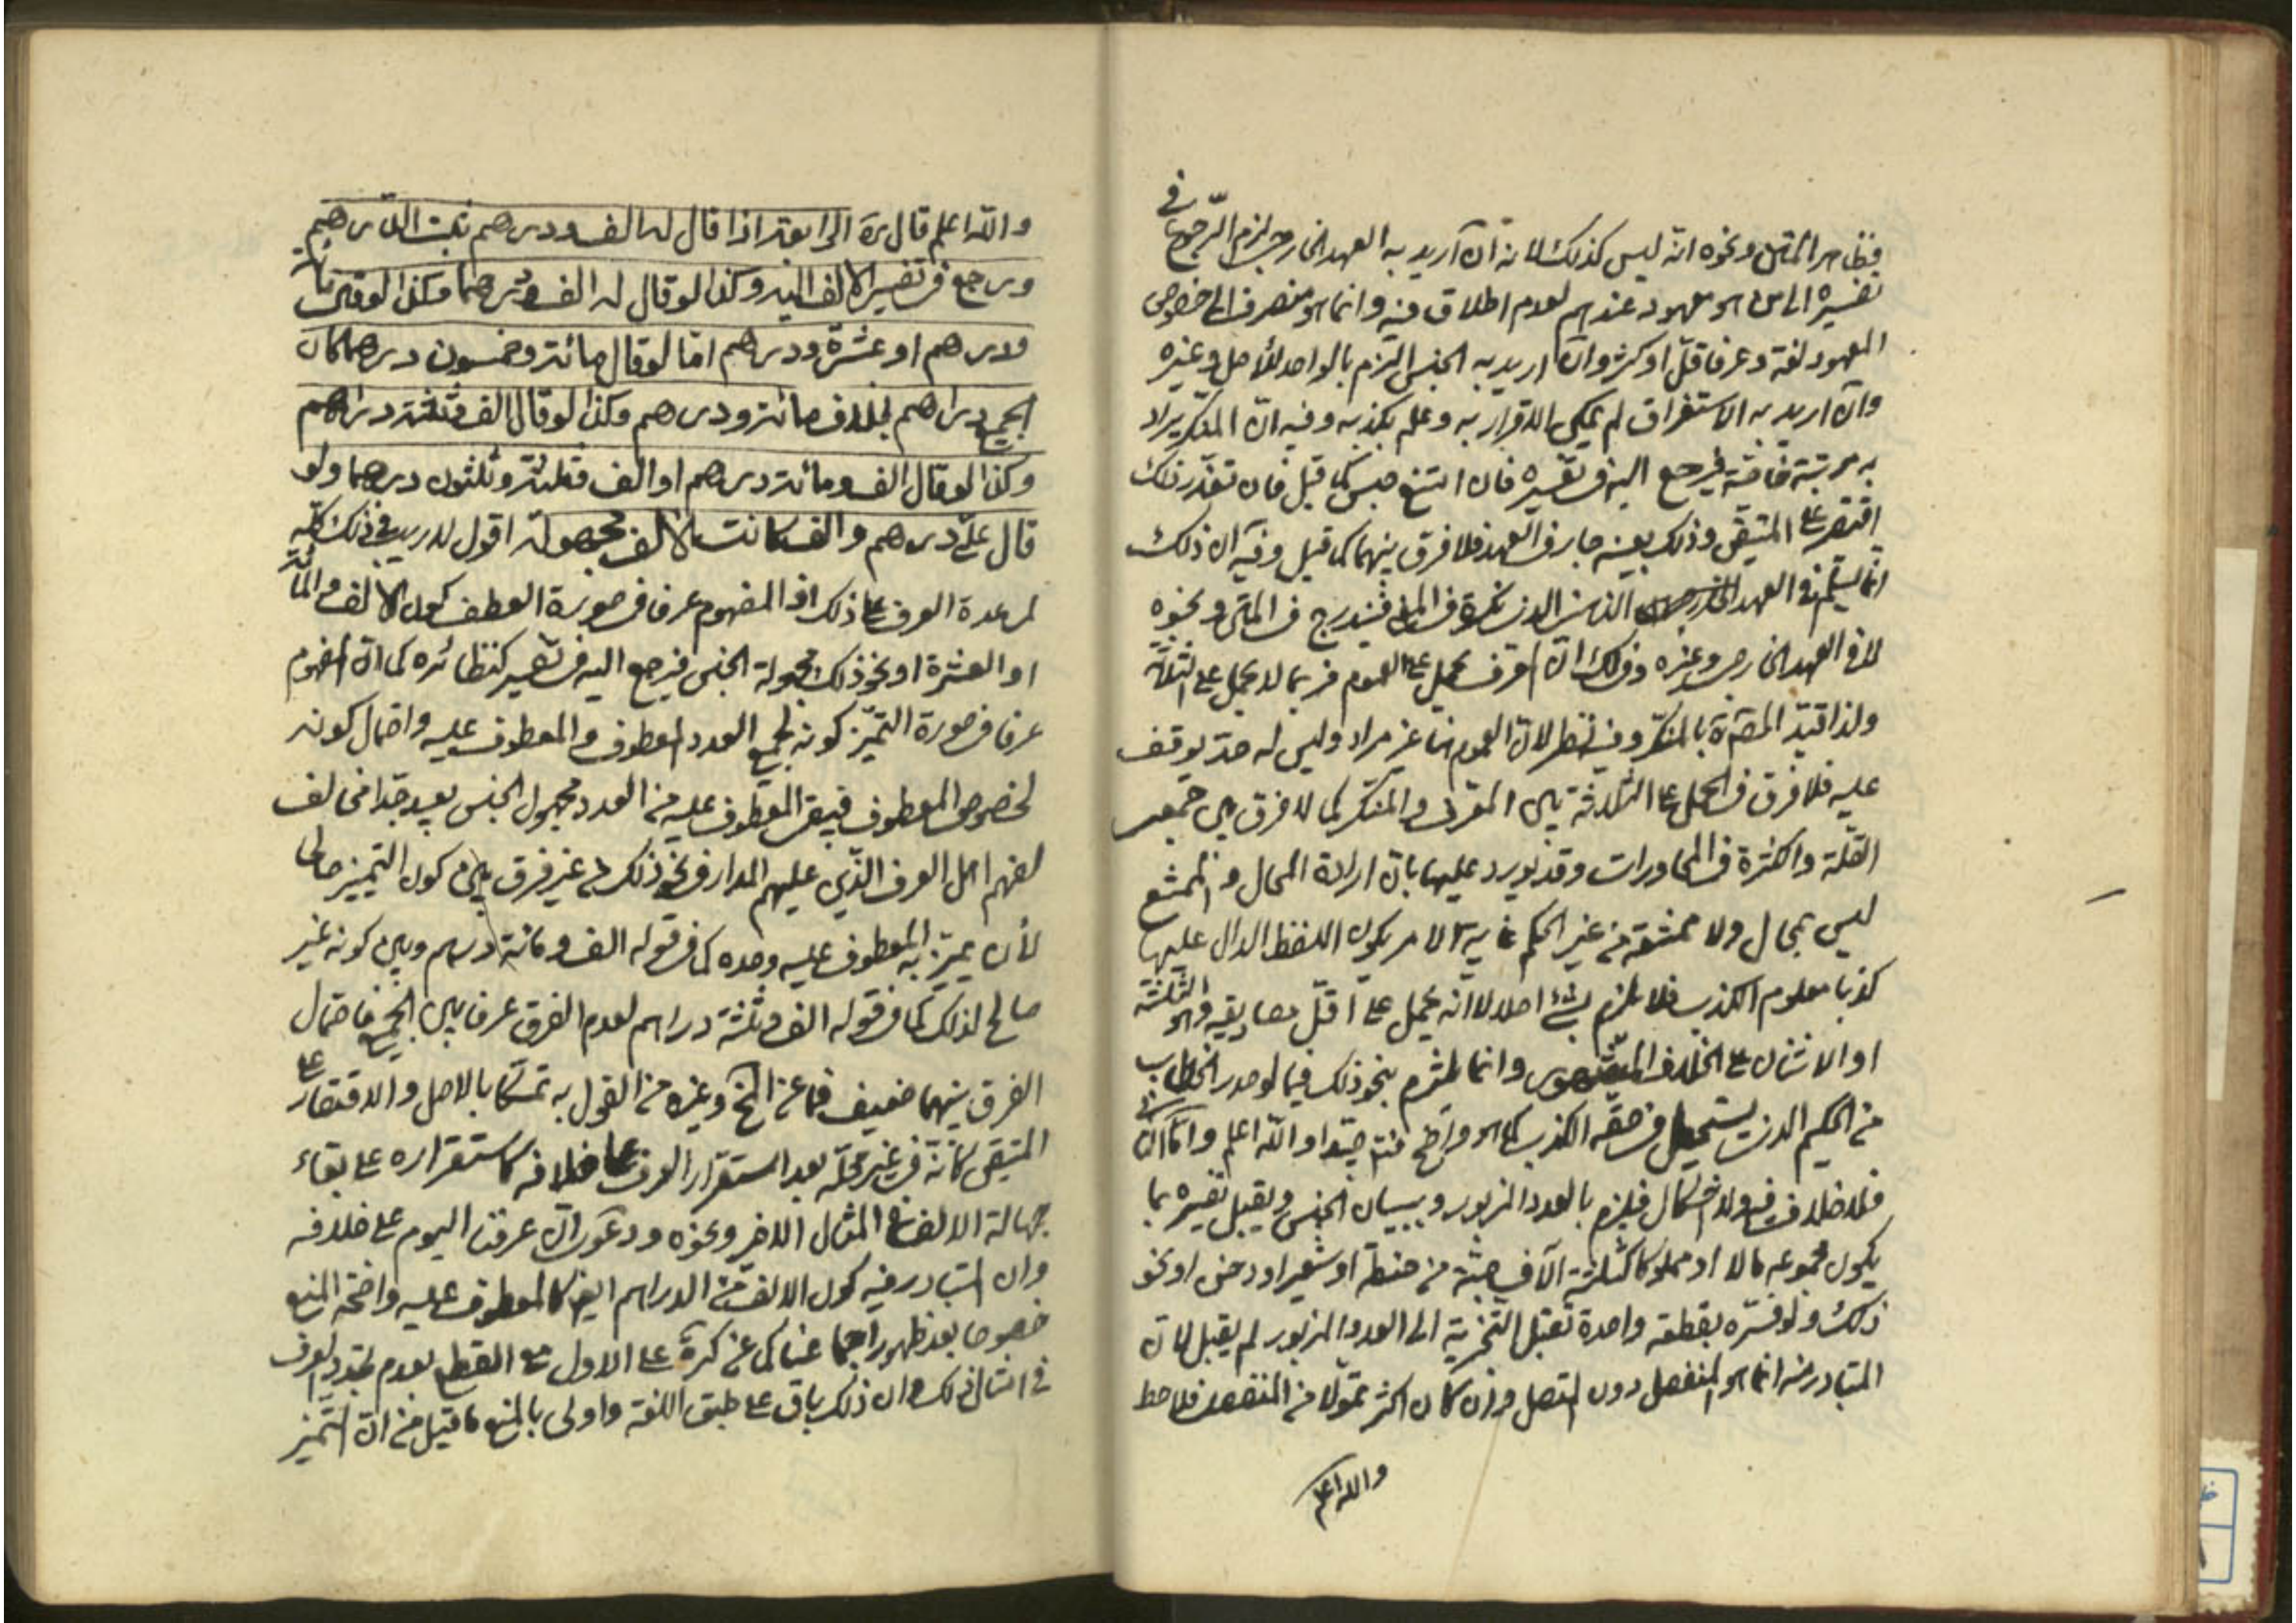 فظاهر المتن ونحوه انّه ليس كذلك لانه ان اريد به العهد الخارجي لزم الرجوع في
تفسيره الى ما هو معهود عندهم لعدم اطلاق فيه وانما هو منصرف الى خصوص
المعهود لغة وعرفا قلّ او كثر وان اريد به الجنس التزم بالواحد للأصل وغيره
وان اريد به الاستغراق لم يمكن الاقرار به وعلم بكذبه وفيه انّ المنكر يراد
به مرتبة خاصّة فيرجع اليه في تفسيره فان امتنع حبس كما قيل فان تعذّر ذلك
اقتصر على المتيقن وذلك بعينه جار في العهد فلا فرق بينهما كما قيل وفيه ان ذلك
انّما يستلم في العهد الذهني الذي نكرة في المعنى فيندرج في المتن ونحوه
لا في العهد الخارجي وغيره وذلك انّ المعرف يحمل على العموم فربما لا يحمل على الثلاثة
ولذا قيّد المصنف ره بالمنكّر وفيه نظر لانّ العموم هنا غير مراد وليس له حدّ يوقف
عليه فلا فرق في الحمل على الثلاثة بين المعرف والمنكر كما لا فرق بين جمعي
القلّة والكثرة في المحاورات وقد يورد عليها بانّ ارادة المحال و الممتنع
ليس بمحال ولا ممتنعة من غير الحكيم غاية الامر يكون اللفظ الدال عليها
كذبا معلوم الكذب فلا يلزم بشئ اصلا لا انّه يحمل على اقلّ مصاديقه وهو الثلثة
او الاثنان على الخلاف وانما يلتزم بنحو ذلك فيما لو صدر الخطاب
من الحكيم الذي يستحيل في حقّه الكذب كما هو واضح فتدبر جيّدا والله اعلم وامّا الثاني
فلا خلاف فيه ولا اشكال فيلزم بالعدد المزبور وببيان الجنس ويقبل تفسيره بما
يكون مجموعه مالا او مملوكا كثلثة آلاف حبّة من حنطة او شعير او دخن او نحو
ذلك ولو فسّره بقطعة واحدة تقبل التجزية الى العدد المزبور لم يقبل لانّ
المتبادر منه انما هو المنفصل دون المتصل وان كان اكثر تموّلا من المنفصل فلاحظ
والله اعلم
والله اعلم قال ره الرابعة اذا قال له الف ودرهم ثبت الدّرهم
ويرجع في تفسير الالف اليه وكذا لو قال له الف ودرهما وكذا لو قال مائة
ودرهم او عشرة ودرهم امّا لو قال مائة وخمسون درهما كان
الجميع دراهم بخلاف مائة ودرهم وكذا لو قال الف وثلثة دراهم
وكذا لو قال الف ومائة درهم او الف وثلثة وثلثون درهما ولو
قال عليّ درهم والف كانت الالف مجهولة اقول لا ريب في ذلك كلّه
لمساعدة العرف على ذلك اذ المفهوم عرفا في صورة العطف كون الالف والمائة
او العشرة او نحو ذلك مجهولة الجنس فيرجع اليه في تفسيره كنظائره كما انّ المفهوم
عرفا في صورة التميّز كونه لجميع العدد المعطوف والمعطوف عليه واحتمال كونه
لخصوص المعطوف فيبقى المعطوف عليه من العدد مجهول الجنس بعيد جدّا مخالف
لفهم اهل العرف الّذي عليهم المدار في نحو ذلك من غير فرق بين كون التميز صالحا
لأن يميّز به المعطوف عليه وحده كما في قوله الف ومائة درهم وبين كونه غير
صالح لذلك كما في قوله الف وثلثة دراهم لعدم الفرق عرفا بين الجميع فاحتمال
الفرق بينهما ضعيف فما عن لخ وغيره من القول به تمسّكا بالاصل والاقتصار على
المتيقن كانّه في غير محلّه بعد استقرار العرف على خلافه كاستقراره على بقاء
جهالة الالف في المثال الاخير ونحوه ودعوى انّ عرفنا اليوم على خلافه
وان المتبادر فيه كون الالف من الدراهم ايضا كالمعطوف عليه واضحة المنع
خصوصا بعد ظهور اجماعنا كما عن كره على الاول مع القطع بعدم تجدد العرف
في امثال ذلك وان ذلك باق على طبق اللغة واولى بالمنع ما قيل من انّ التميز